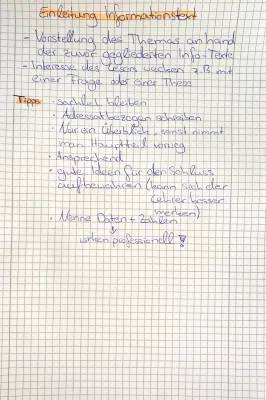 Einleitung Informationstext
- Vorstellung des Themas anhand
der zuvor gegliederten Info-Texte
- Interesse des Lesers wecken z.B mit
einer Frage oder einer These
Tipps · sachlich bleiben
· Adressatbezogen schreiben
· Nur ein Überblick, sonst nimmt
man Hauptteil vorweg
· Ansprechend
· gute Ideen für den Schluss
aufbewahren (kann sich der
Lehrer besser
merken)
· Nenne Daten + Zahlen
↓
wirken professionell !